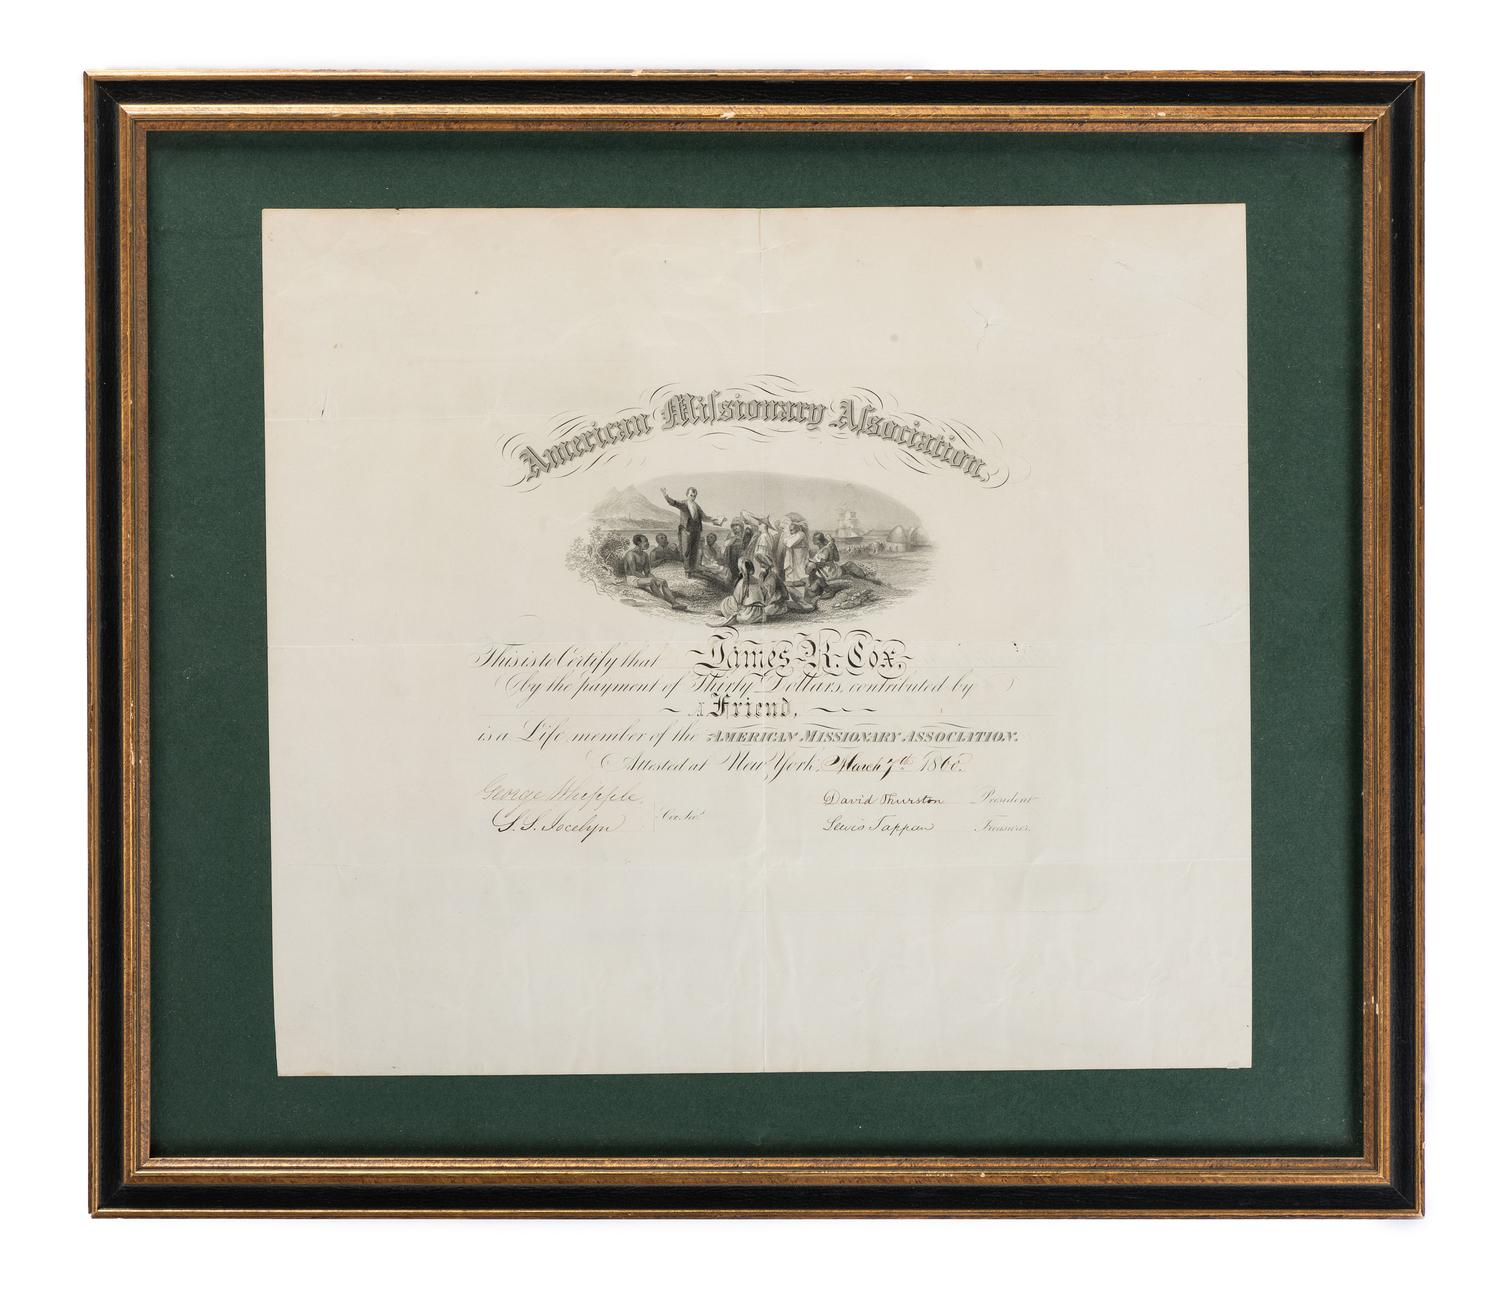 American Miſsionary Aſsociation.
This is to Certify that James R. Cox,
by the payment of Thirty Dollars, contributed by
A Friend,
is a Life member of the AMERICAN MISSIONARY ASSOCIATION.
Attested at New York, March 7th
George Whipple,
S. S. Jocelyn
Cor. Sec.s
David Thurston President
Lewis Tappan Treasurer.